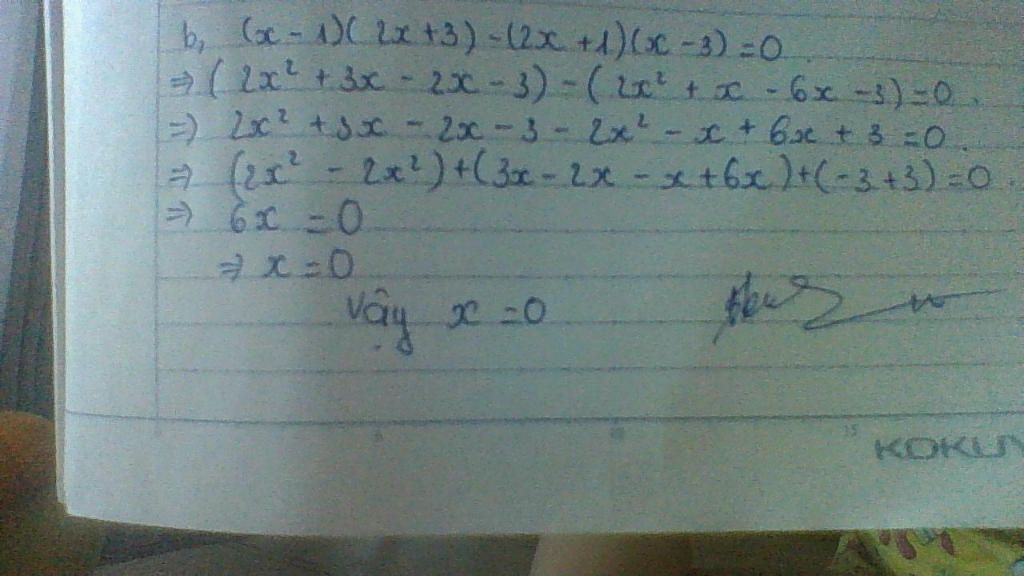 b, (x - 1)( 2x+3) - (2x +1)(x - 3) = 0
⇒ ( 2x² + 3x - 2x - 3) - ( 2x² + x - 6x - 3) = 0.
⇒ 2x² + 3x - 2x - 3 - 2x² - x + 6x + 3 = 0.
⇒ (2x² - 2x²) + (3x - 2x - x + 6x) + (-3 + 3) = 0.
⇒ 6x = 0
⇒ x = 0
Vậy x = 0
15